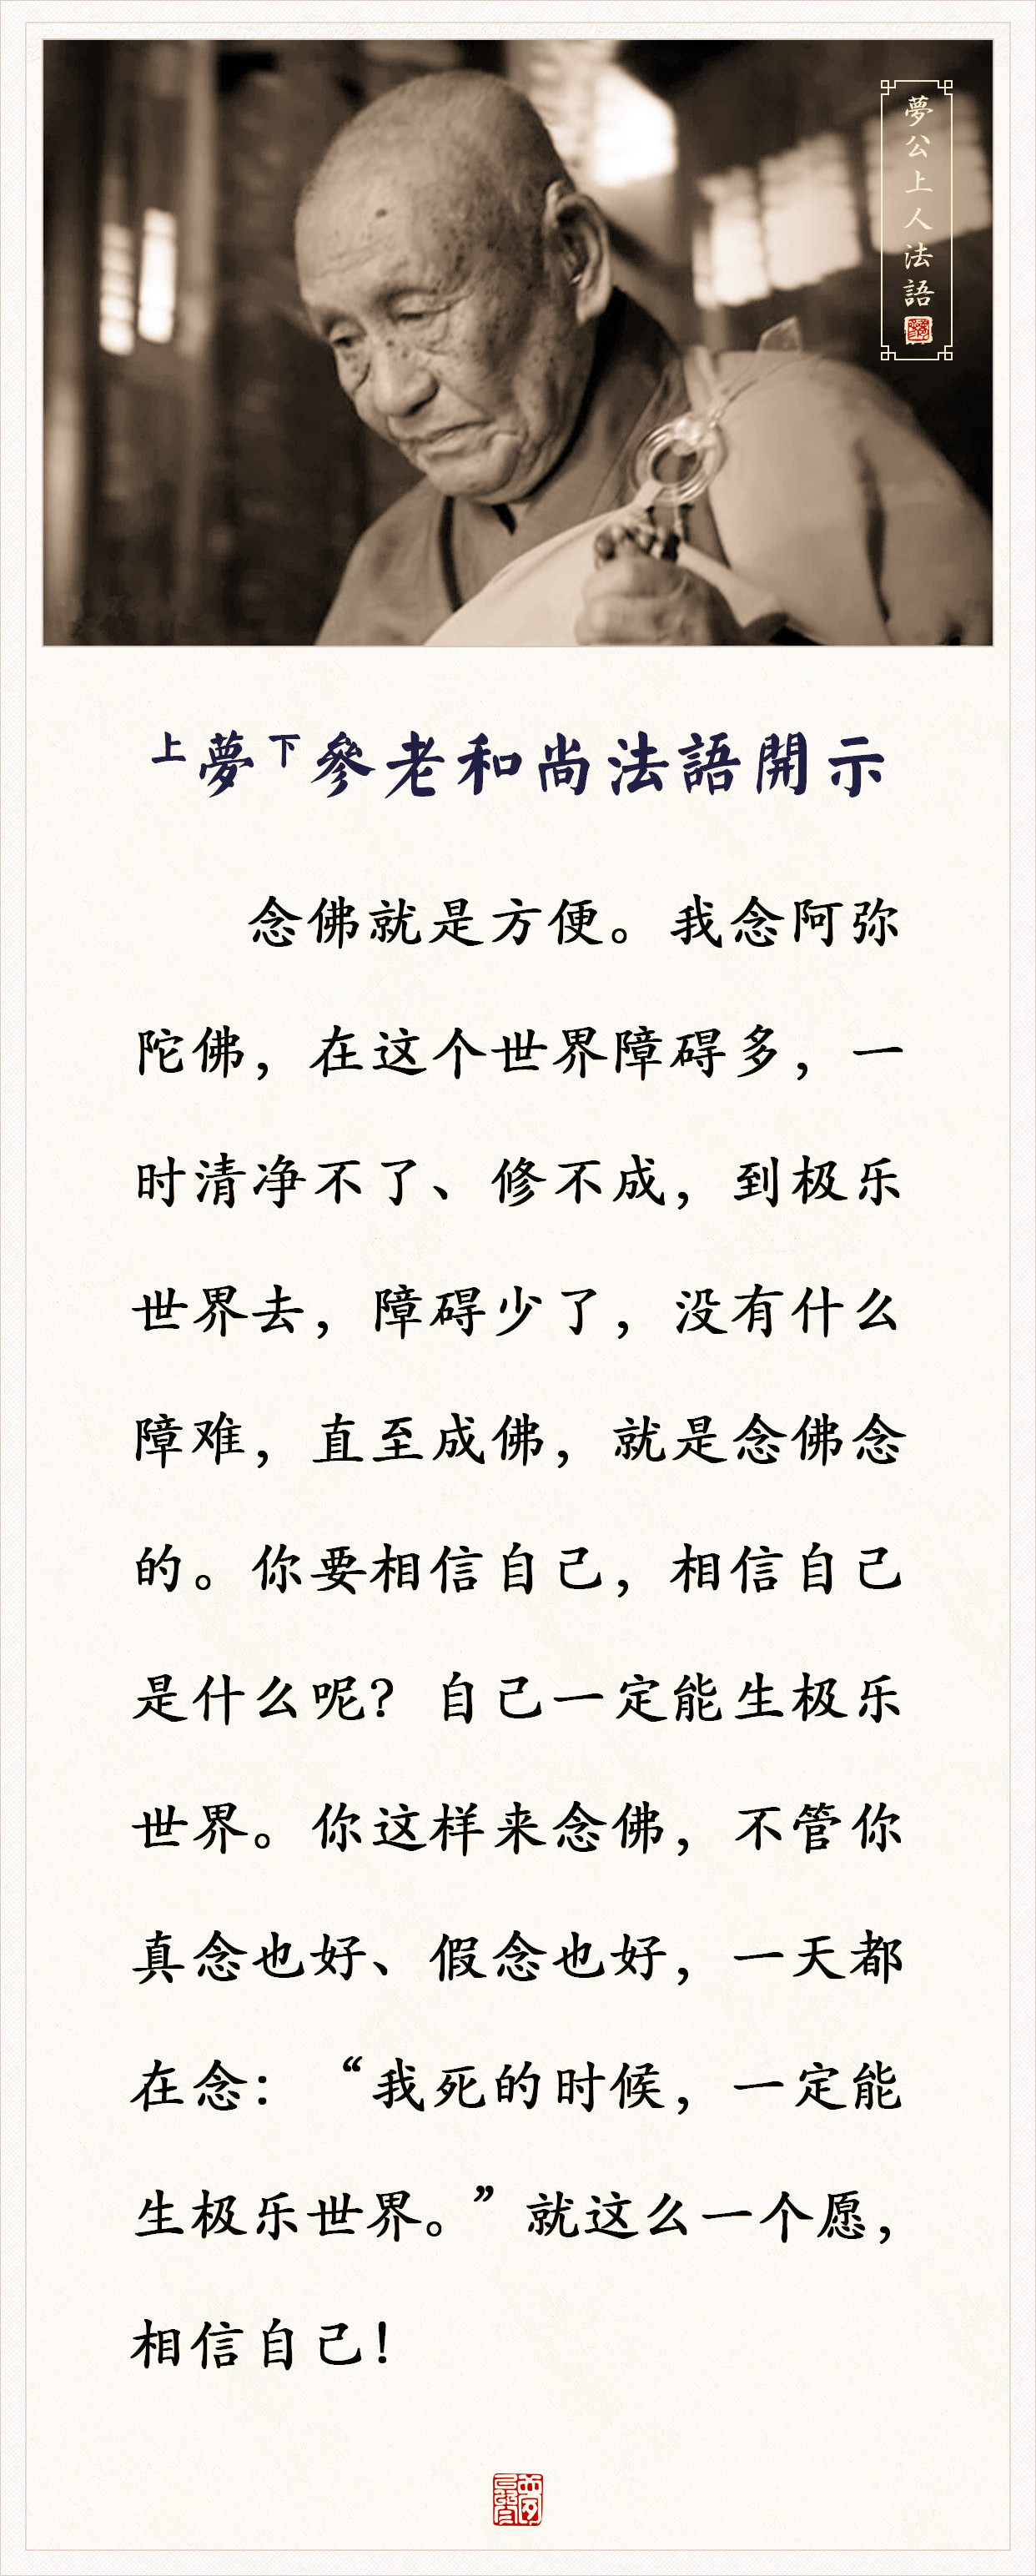 夢公上人法語
上夢下參老和尚法語開示
念佛就是方便。我念阿弥
陀佛，在这个世界障碍多，一
时清净不了、修不成，到极乐
世界去，障碍少了，没有什么
障难，直至成佛，就是念佛念
的。你要相信自己，相信自己
是什么呢？自己一定能生极乐
世界。你这样来念佛，不管你
真念也好、假念也好，一天都
在念：“我死的时候，一定能
生极乐世界。”就这么一个愿，
相信自己！